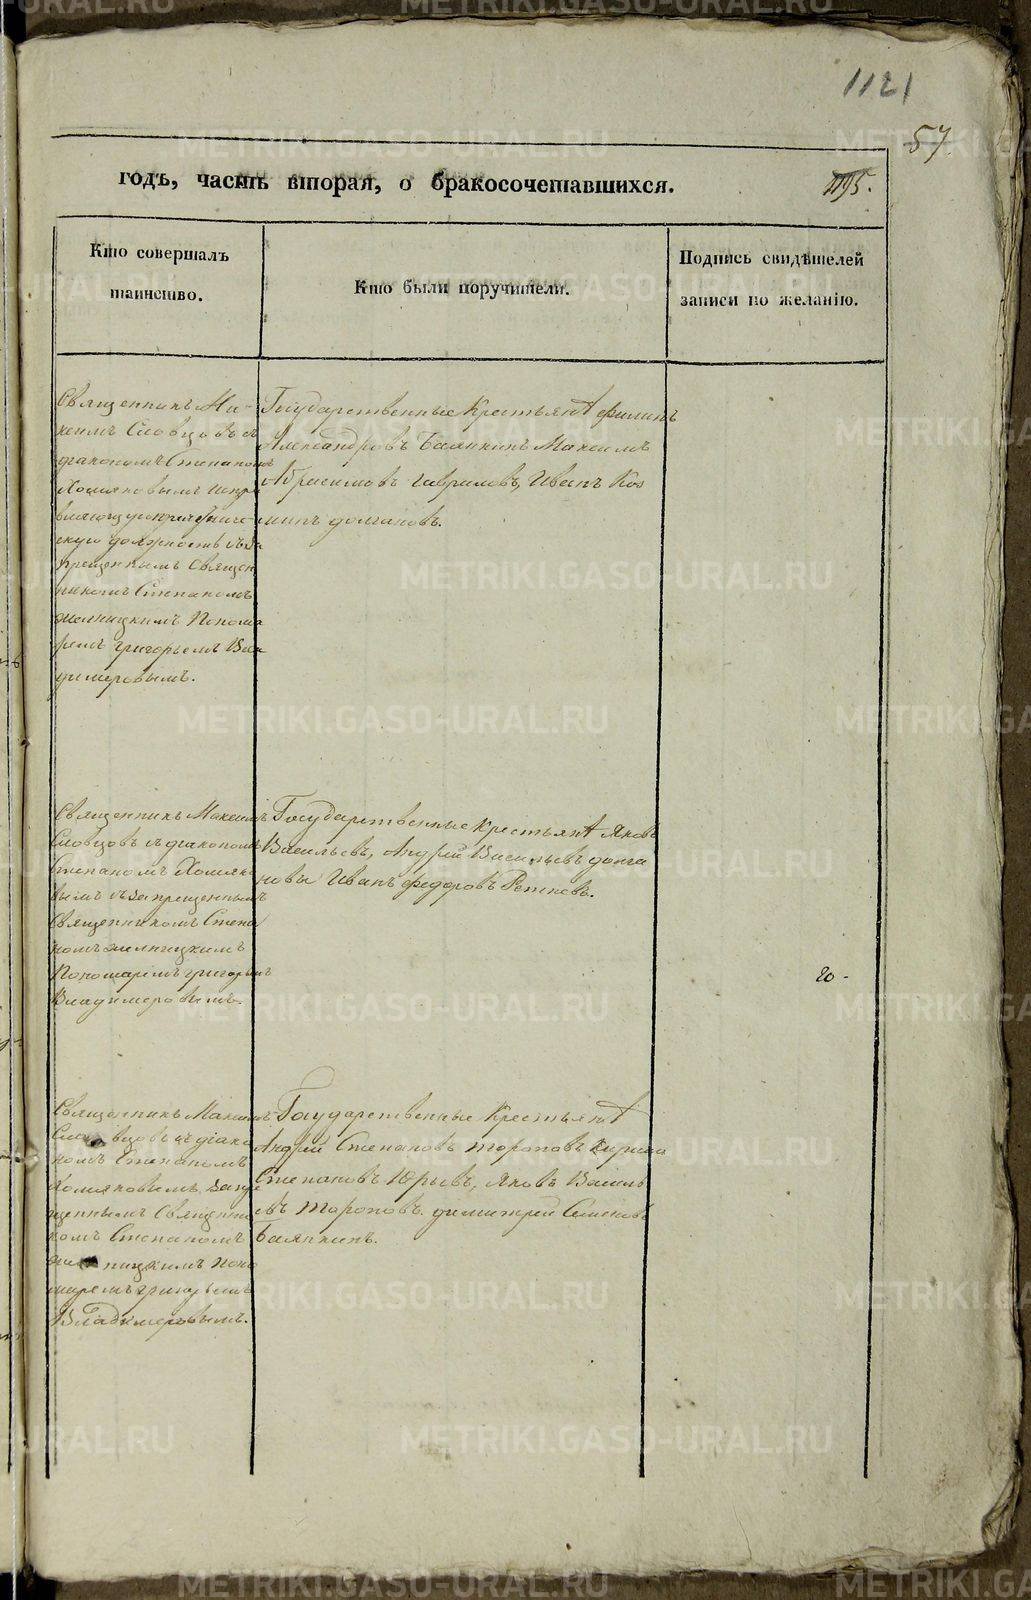 1121
57
1195.
годъ, часть вторая, о бракосочетавшихся.
Кто совершалъ
таинство.
Кто были поручители.
Подпись свидѣтелей
записи по желанію.
Священникъ Ма-
ксимъ Словцовъ съ
діакономъ Степаномъ
Хомяковымъ испра
вляющ
скую должность съ за
прещеннымъ Священ
никомъ Степаномъ
Понома
ремъ Григорьемъ Вла
димеровымъ.
Государственные Крестьянѣ Филипъ
Александровъ Баянкинъ Максимъ
Абросимовъ Гавриловъ, Иванъ Коз
минъ Долгановъ.
Священникъ Максимъ
Словцовъ съ діакономъ
Степаномъ Хомяко
вымъ съ запрещеннымъ
Священникомъ Степа
номъ
Пономаремъ Григорьемъ
Владимеровымъ.
Государственные Крестьянѣ Яковъ
Васильевъ, Андрей Васильевъ Долга
новы Иванъ Федоровъ Репневъ.
20-
Священникъ Максимъ
Словцовъ съ діако
номъ Степаномъ
Хомяковымъ запре
щеннымъ Священни
комъ Степаномъ
поно
маремъ Григорьемъ
Владимеровымъ.
Государственные Крестьянѣ
Андрей Степановъ Тороповъ Кирила
Степановъ Юрьевъ, Яковъ Василь
евъ Тороповъ. Димитрей Семеновъ
Баянкинъ.
METRIKI.GASO-URAL.RU